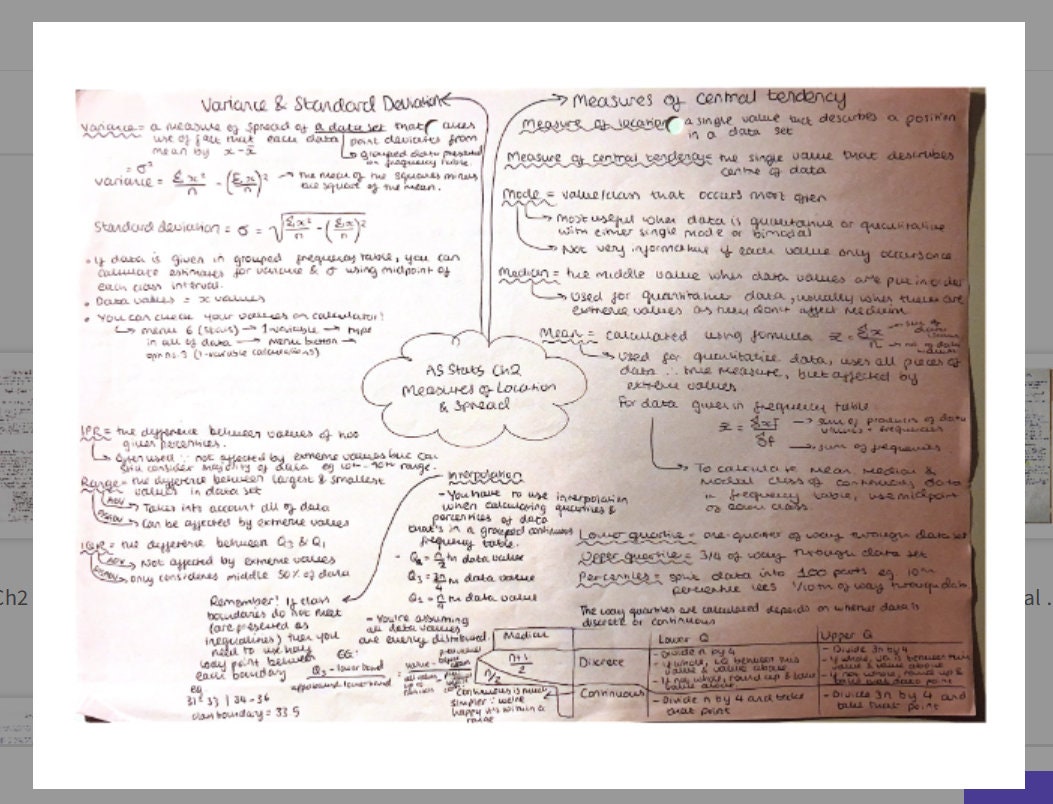 Variance & Standard Deviation
Variance = a measure of spread of a data set that takes
use of fact that each data point deviates from
mean by x - x̄
grouped data presented
in frequency table
= σ²
variance = Σx²/n - (Σx/n)²
the mean of the squares minus
the square of the mean.
Standard deviation = σ = √(Σx²/n - (Σx/n)²)
• If data is given in grouped frequency table, you can
calculate estimates for variance & σ using midpoint of
each class interval.
• Data values = x values
• You can check your values on calculator!
menu 6 (stats) → 1-variable → type
in all of data → menu button →
option 3 (1-variable calculations)
Measures of central tendency
Measure of location = a single value that describes a position
in a data set
Measure of central tendency = the single value that describes
centre of data
Mode = value/class that occurs most often
Most useful when data is qualitative or quantitative
with either single mode or bimodal
Not very informative if each value only occurs once
Median = the middle value when data values are put in order
Used for quantitative data, usually when there are
extreme values as they don't affect median
Mean = calculated using formula x̄ = Σx/n
sum of data values
no. of data values
Used for quantitative data, uses all pieces of
data ∴ true measure, but affected by
extreme values
For data given in frequency table
x̄ = Σxf/Σf
sum of products of data
values & frequencies
sum of frequencies
To calculate mean median &
modal class of continuous data
in frequency table, use midpoint
of each class.
AS Stats Ch2
Measures of Location
& Spread
IPR = the difference between values of two
given percentiles.
Often used ∵ not affected by extreme values but can
still consider majority of data eg 10th - 90th range.
Range = the difference between largest & smallest
values in data set
ADV
Takes into account all of data
DISADV
Can be affected by extreme values
IQR = the difference between Q₃ & Q₁
ADV
Not affected by extreme values
DISADV
only considers middle 50% of data
Interpolation
- You have to use interpolation
when calculating quartiles &
percentiles of data
that's in a grouped continuous
frequency table.
- Q₂ = n/2 th data value
Q₃ = 3n/4 th data value
Q₁ = n/4 th data value
- You're assuming
all data values
are evenly distributed.
Remember! If class
boundaries do not meet
(are presented as
inequalities) then you
need to use half
way point between
each boundary
eg
31 - 33 | 34 - 36
class boundary = 33.5
EG:
Q₃ - lower bound
upper bound - lower bound
Lower quartile = one-quarter of way through data set
Upper quartile = 3/4 of way through data set
Percentiles = split data into 100 parts eg 10th
percentile lies 1/10th of way through data
The way quartiles are calculated depends on whether data is
discrete or continuous
Median
Lower Q
Upper Q
n+1/2
Discrete
- Divide n by 4
- If whole, LQ between this
value & value above
- If not whole, round up & take
value above
- Divide 3n by 4
- If whole, UQ is between this
value & value above
- If not whole, round up &
n/2
Continuous
- Divide n by 4 and take
that point
- Divide 3n by 4 and
take that point
Continuous is much
simpler ∵ we're
happy it's within a
range